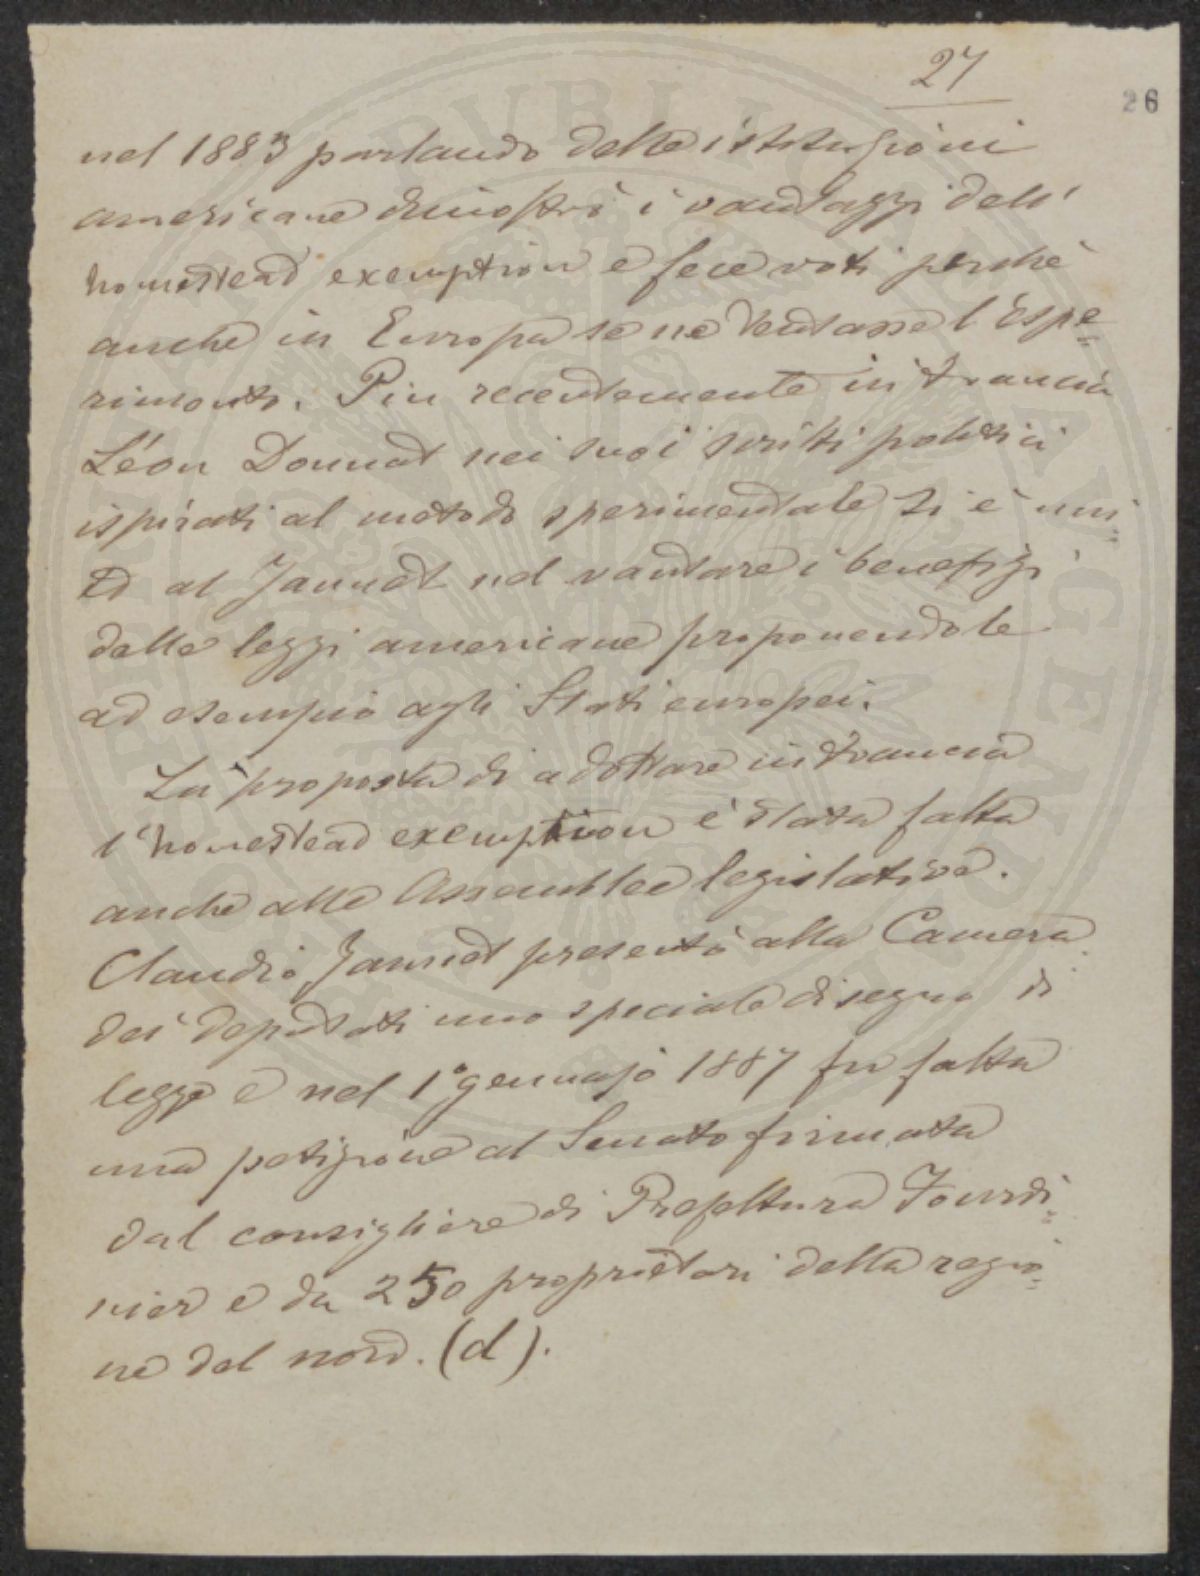 27
26
nel 1883 parlando delle istituzioni
americane dimostrò i vantaggi dell'
homestead exemption e fece voti perchè
anche in Europa se ne tentasse l'espe=
rimento. Più recentemente in Francia
Léon Donnat nei suoi scritti politici
ispirati al metodo sperimentale si è uni=
to al Jannet nel vantare i benefizi
delle leggi americane proponendole
ad esempio agli Stati europei.
La proposta di adottare in Francia
l'homestead exemption è stata fatta
anche alle Assemblee legislative.
Claudio Jannet presentò alla Camera
dei deputati uno speciale disegno di
legge e nel 1° gennajo 1887 fu fatta
una petizione al Senato firmata
dal consigliere di Prefettura Fourdi=
nier e da 250 proprietari della regio=
ne del nord. (d).